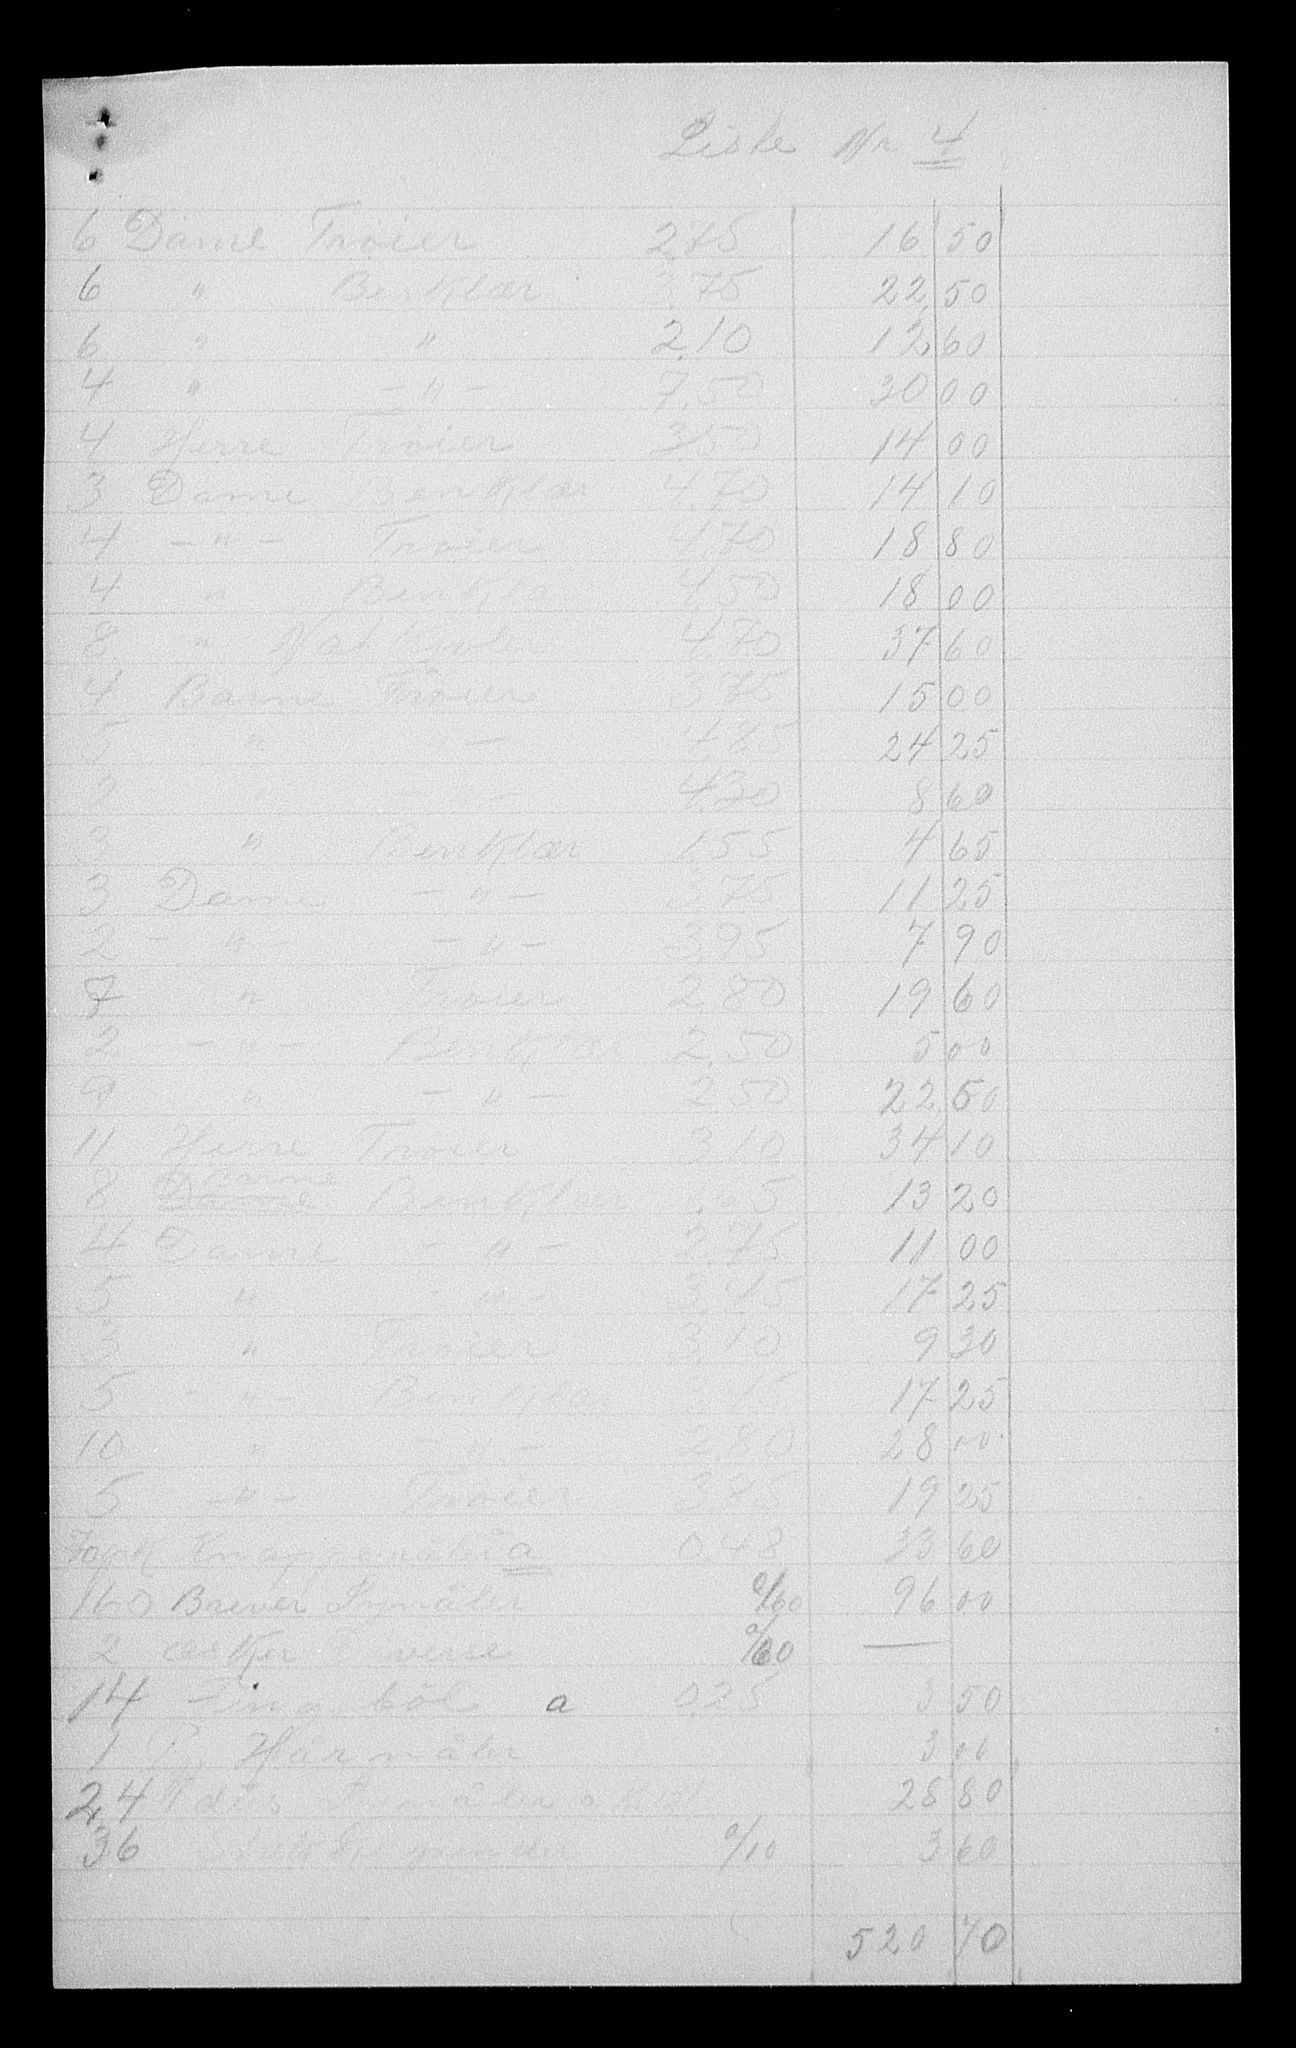 Liste Nr 4
6 Dame Trøier 2.75 16 50
6 " Benklær 3.75 22 50
6 " " 2.10 12 60
4 " -"- 7.50 30 00
4 Herre Trøier 3.50 14 00
3 Dame Benklær 4.70 14 10
4 -"- Trøier 4.70 18 80
4 " Benklæ 4.50 18 00
8 " Natkjoler 4.70 37 60
4 Barne Trøier 3.75 15 00
5 " - 4.85 24 25
2 - " - 4.30 8 60
3 " Benklær 1.55 4 65
3 Dame -"- 3.75 11 25
2 -"- -"- 3.95 7 90
7 " Trøier 2.80 19 60
2 -"- Benklær 2.50 5 00
9 " -"- 2.50 22 50
11 Herre Trøier 3.10 34 10
8 Barne Benklær 1.65 13 20
4 Dame -"- 2.75 11 00
5 " -"- 3.45 17 25
3 " Trøier 3.10 9 30
5 -"- Benklær 3.45 17 25
10 " -"- 2.80 28 00
5 -"- Trøier 3.85 19 25
70 pk Knappenåler a 0.48 33 60
160 Brever Synåler a/60 96 00
2 æsker Diverse a/60 —
14 Fingerbøl a 0.25 3 50
1 Hårnåler 3 00
24 dus Synåler a 28 80
36 a/10 3 60
520 70